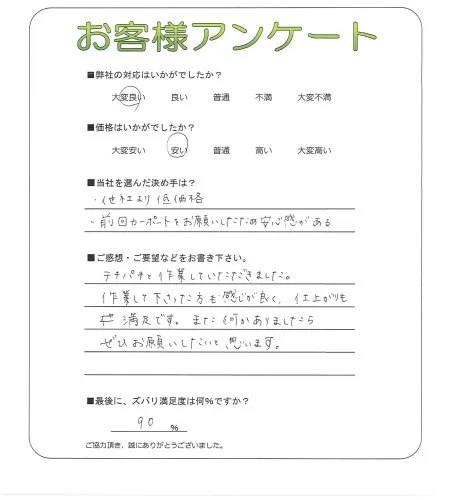 お客様アンケート
■弊社の対応はいかがでしたか？
大変良い 良い 普通 不満 大変不満
■価格はいかがでしたか？
大変安い 安い 普通 高い 大変高い
■当社を選んだ決め手は？
・他社より低価格
・前回カーポートをお願いしたため安心感がある
■ご感想・ご要望などをお書き下さい。
テキパキと作業していただきました。
作業して下さった方も感じが良く、仕上がりも
満足です。また何かありましたら
ぜひお願いしたいと思います。
■最後に、ズバリ満足度は何％ですか？
90 %
ご協力頂き、誠にありがとうございました。